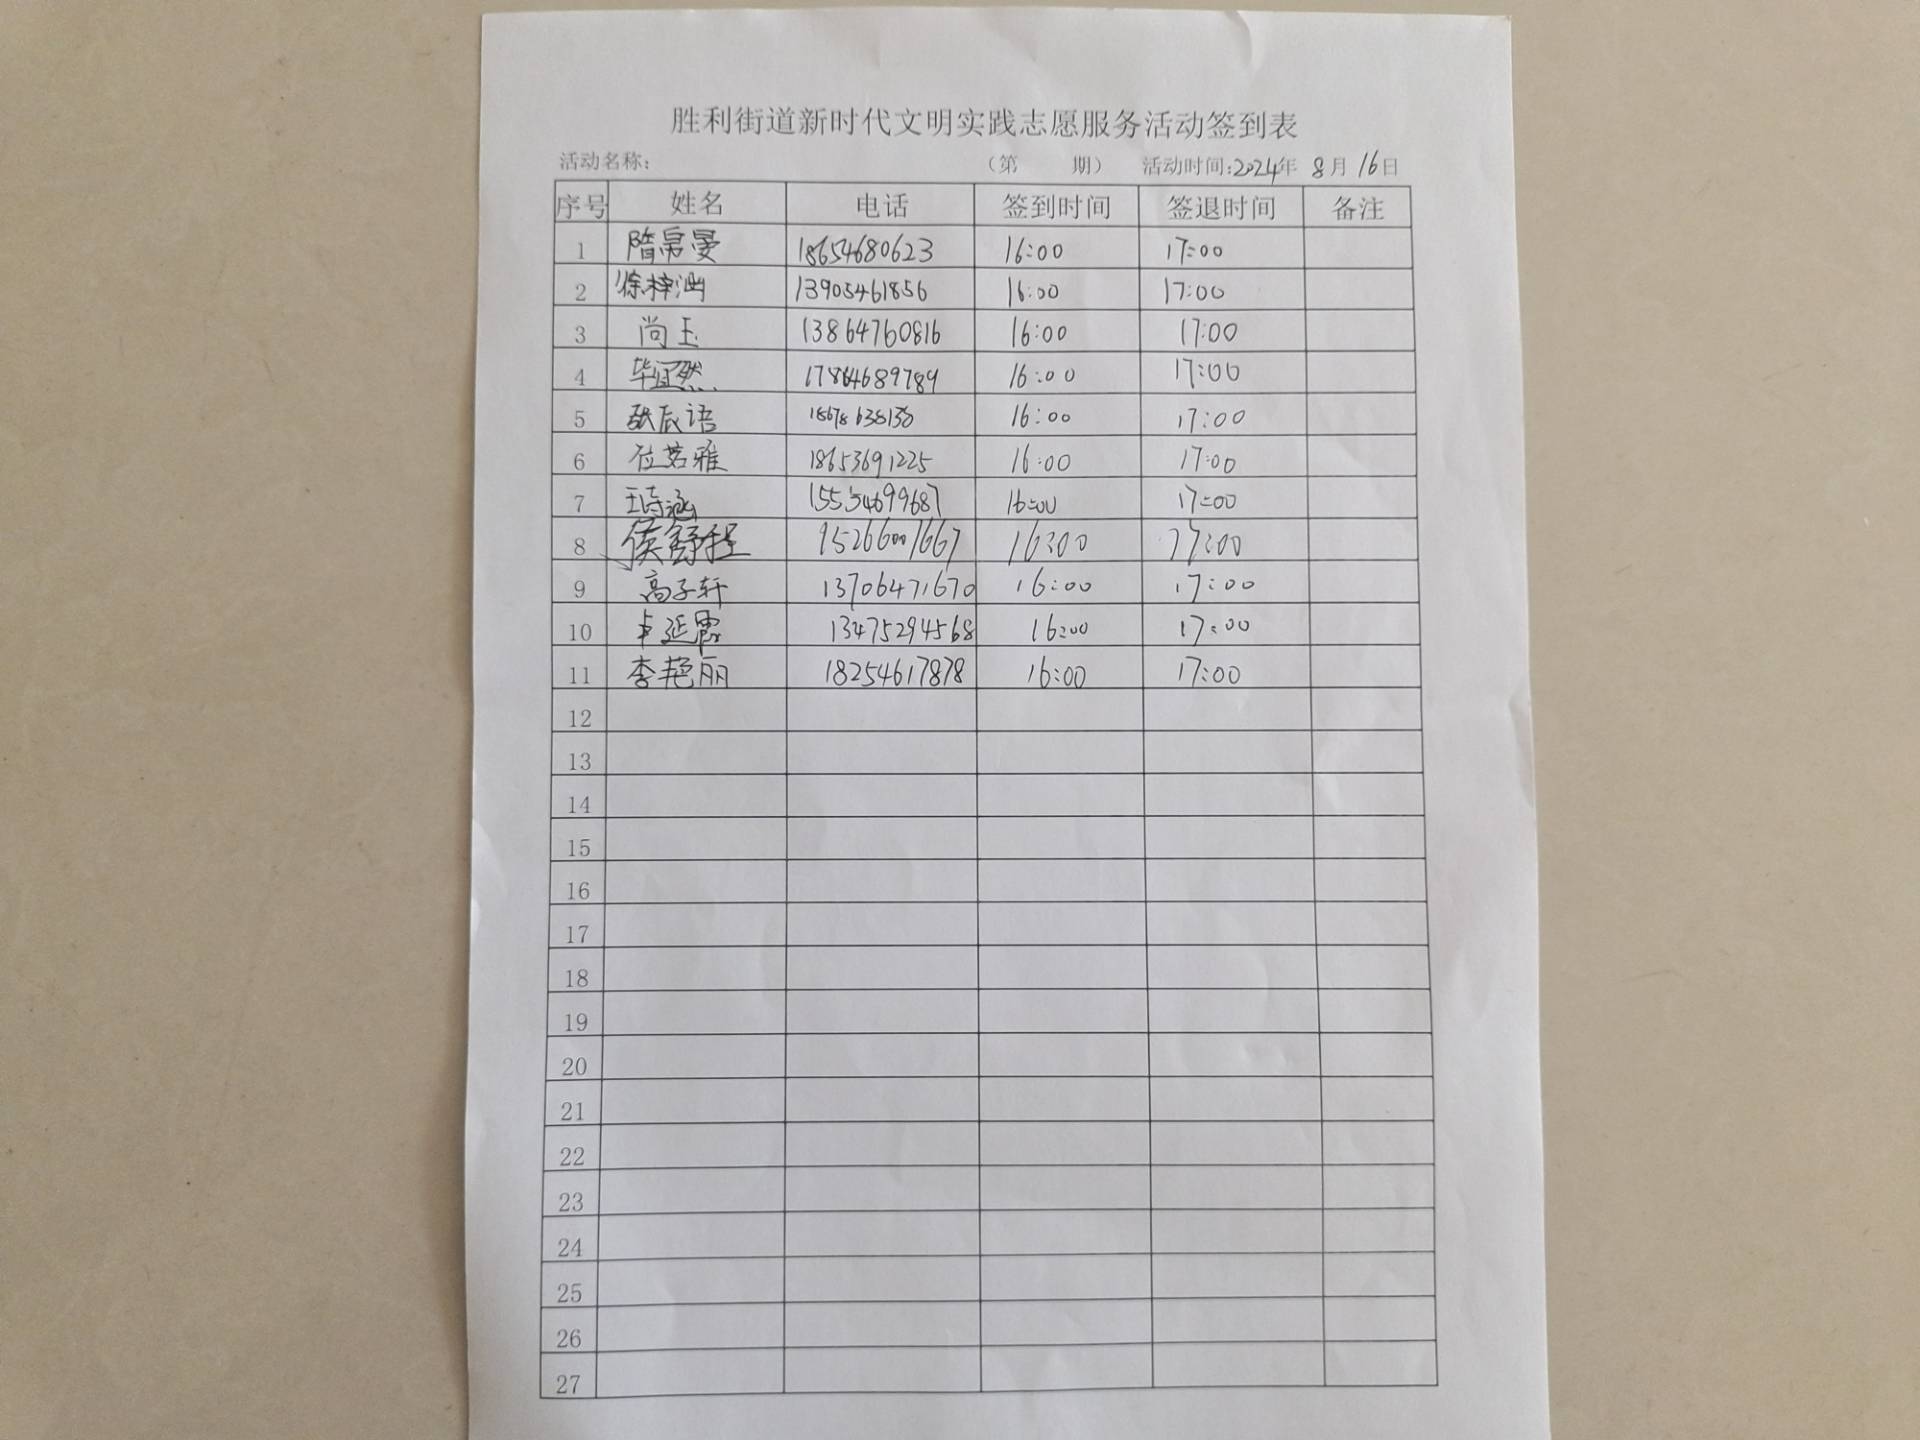 胜利街道新时代文明实践志愿服务活动签到表
活动名称: （第 期） 活动时间:2024年 8月16日
序号 姓名 电话 签到时间 签退时间 备注
1 隋帛曼 18654680623 16:00 17:00
2 徐梓涵 13905461856 16:00 17:00
3 尚玉 13864760816 16:00 17:00
4 毕宜然 17864689789 16:00 17:00
5 张辰语 16:00 17:00
6 位茗雅 18653691225 16:00 17:00
7 王诗涵 15554699687 16:00 17:00
8 侯舒程 16:00 17:00
9 高子轩 13706471670 16:00 17:00
10 卢延霞 13475294568 16:00 17:00
11 李艳丽 18254617878 16:00 17:00
12
13
14
15
16
17
18
19
20
21
22
23
24
25
26
27